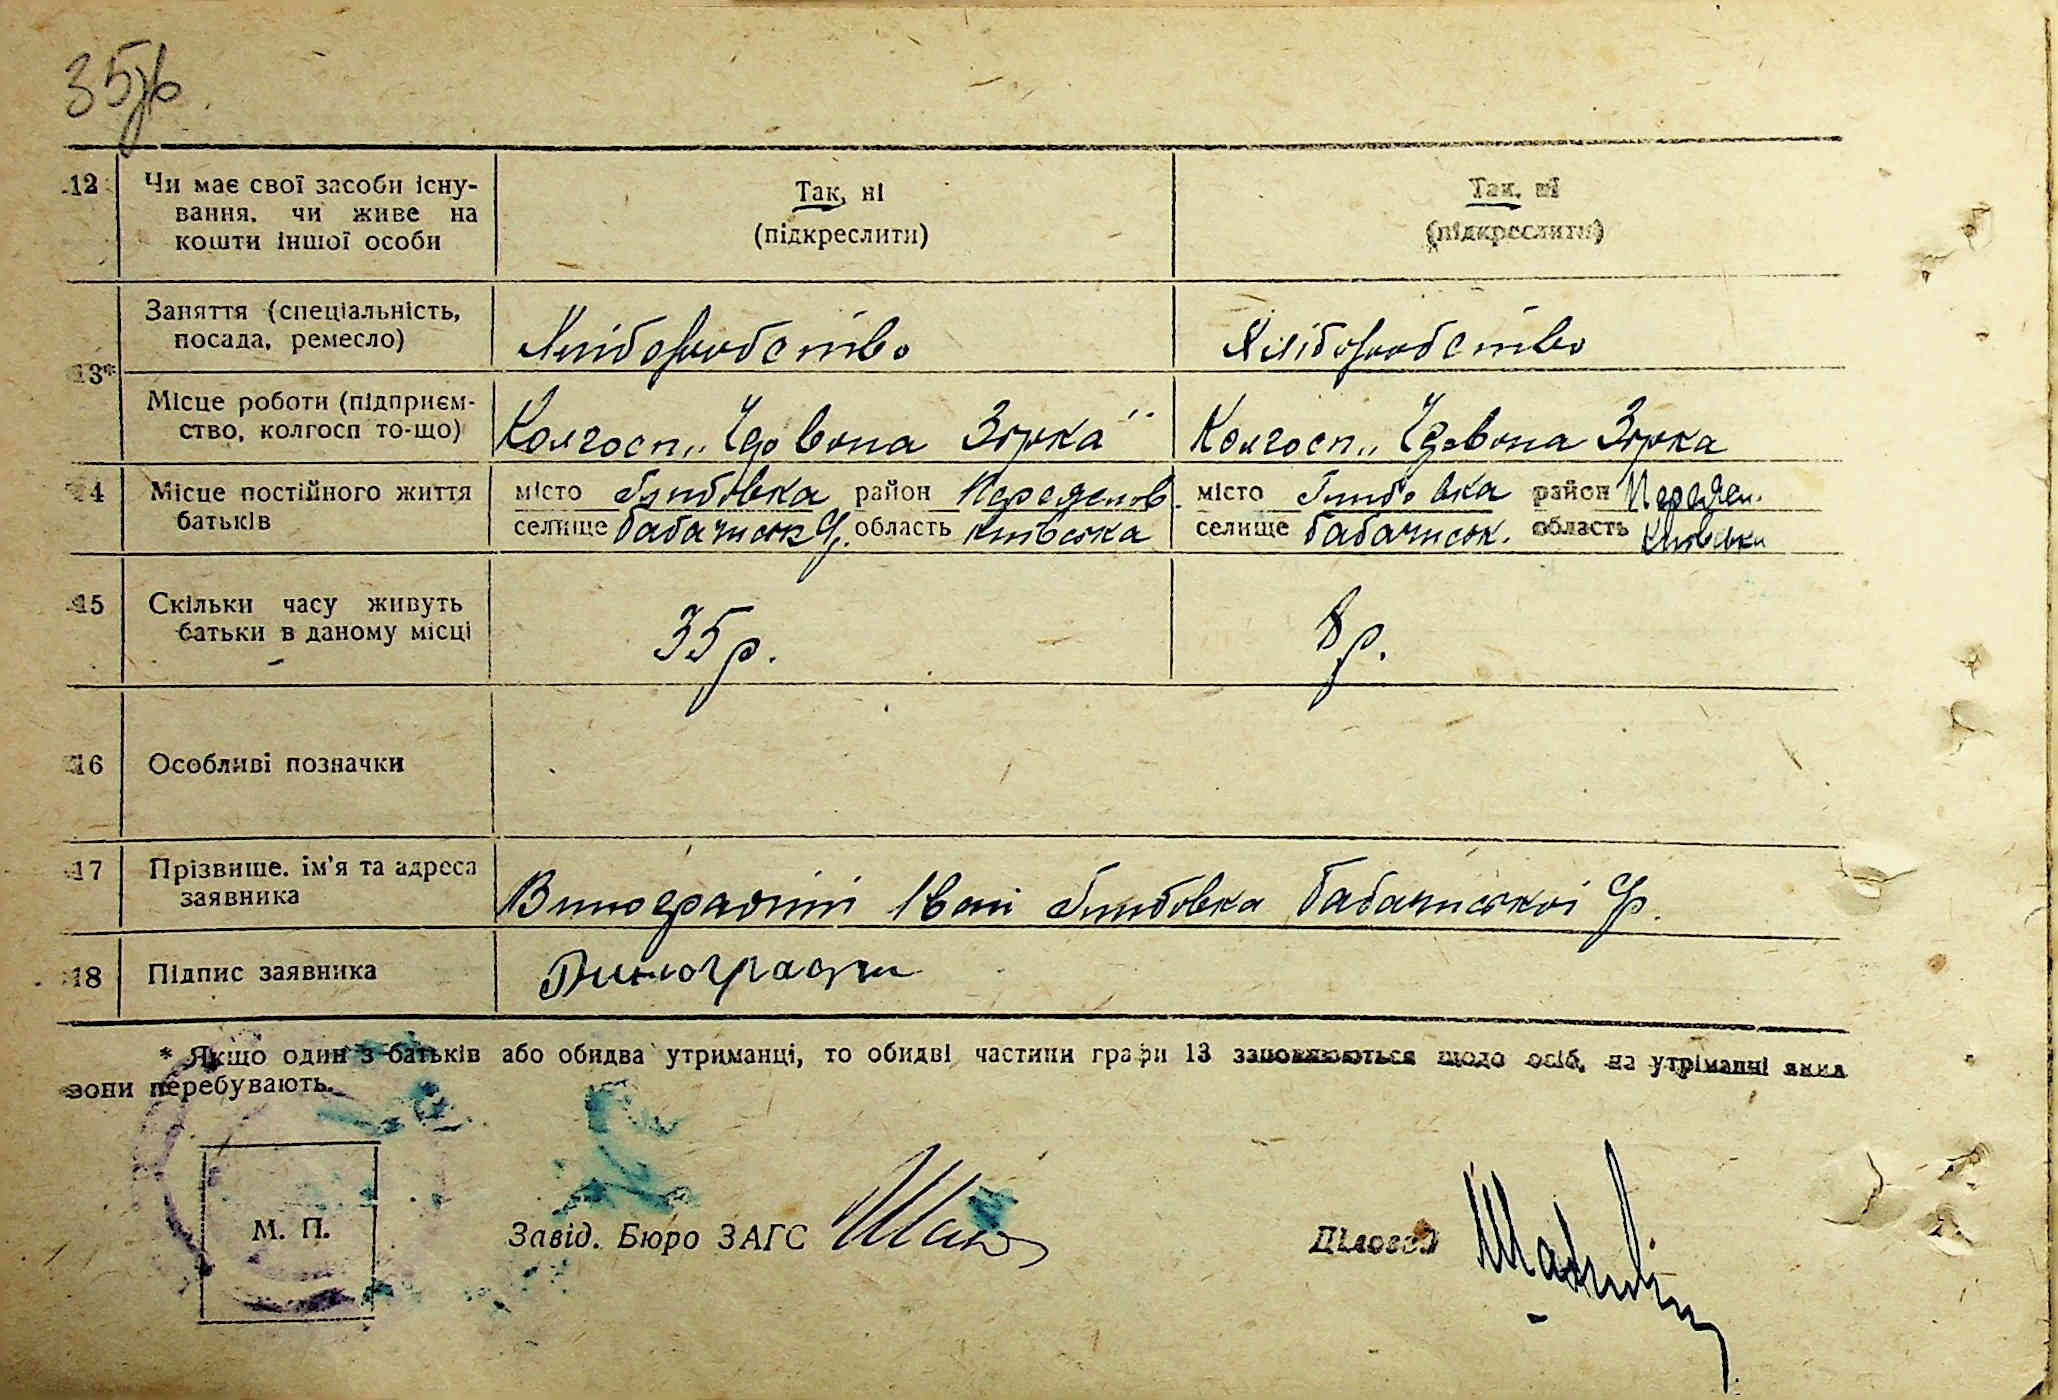 35зв
12 Чи має свої засоби існу-
вання, чи живе на
кошти іншої особи
Так, ні
(підкреслити)
Так, ні
(підкреслити)
13* Заняття (спеціальність,
посада, ремесло)
Хліборобство
Хліборобство
Місце роботи (підприєм-
ство, колгосп то-що)
Колгосп „Червона Зірка"
Колгосп „Червона Зірка
14 Місце постійного життя
батьків
місто Глибовка район
селище область Київська
місто Глибовка район
селище область Київська
15 Скільки часу живуть
батьки в даному місці
35 р.
8 р.
16 Особливі позначки
17 Прізвише, ім'я та адреса
заявника
Іван Глибовка
18 Підпис заявника
* Якщо один з батьків або обидва утриманці, то обидві частини графи 13 заповнюються щодо осіб, на утріманні яких
вони перебувають.
М. П.
Завід. Бюро ЗАГС
Діловод